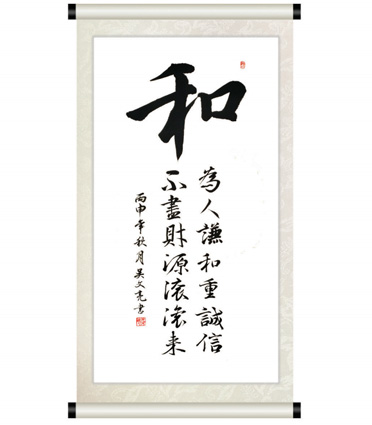 和
為人謙和重誠信
不盡財源滾滾来
丙申年秋月吴文亮書